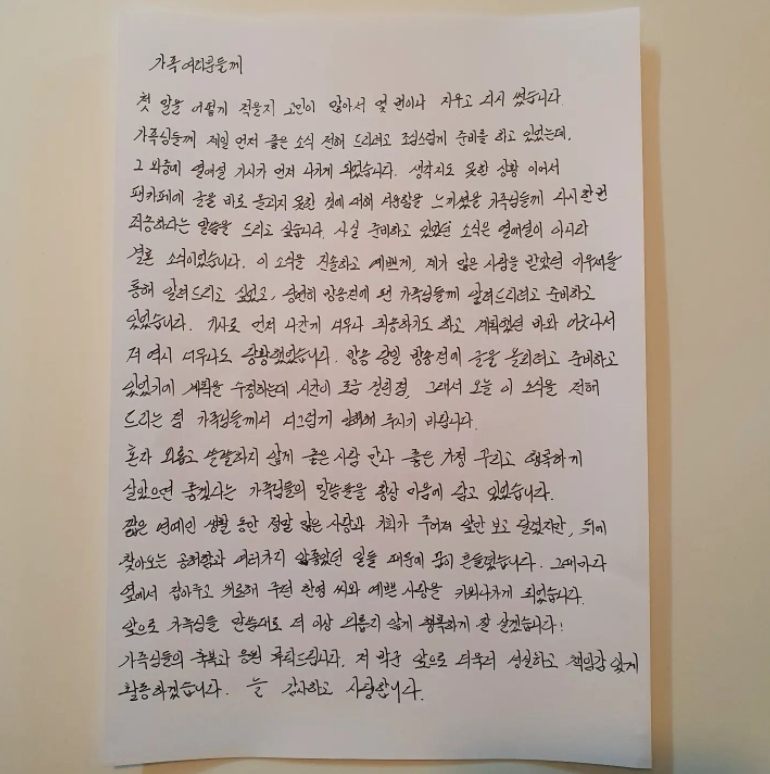 가족 여러분들께
첫 말을 어떻게 적을지 고민이 많아서 몇 번이나 지우고 다시 썼습니다.
가족님들께 제일 먼저 좋은 소식 전해 드리려고 조심스럽게 준비를 하고 있었는데,
그 와중에 열애설 기사가 먼저 나가게 되었습니다. 생각지도 못한 상황 이어서
팬카페에 글을 바로 올리지 못한 것에 대해 서운함을 느끼셨을 가족님들께 다시 한번
죄송하다는 말씀을 드리고 싶습니다. 사실 준비하고 있었던 소식은 열애설이 아니라
결혼 소식이었습니다. 이 소식을 진솔하고 예쁘게, 제가 많은 사랑을 받았던 미우새를
통해 알려드리고 싶었고, 당연히 방송전에 팬 가족님들께 알려드리려고 준비하고
있었습니다. 기사로 먼저 나간게 너무나 죄송하기도 하고 계획했던 바와 어긋나서
저 역시 너무나도 당황했었습니다. 방송 당일 방송전에 글을 올리려고 준비하고
있었기에 계획을 수정하는데 시간이 조금 걸린 점, 그래서 오늘 이 소식을 전해
드리는 점 가족님들께서 너그럽게 이해해 주시기 바랍니다.
혼자 외롭고 쓸쓸하지 않게 좋은 사람 만나 좋은 가정 꾸리고 행복하게
살았으면 좋겠다는 가족님들의 말씀들을 항상 마음에 담고 있었습니다.
짧은 연예인 생활 동안 정말 많은 사랑과 기회가 주어져 앞만 보고 달렸지만, 뒤에
찾아오는 공허함과 여러가지 안좋았던 일들 때문에 많이 흔들렸습니다. 그때마다
옆에서 잡아주고 위로해 주던 한영 씨와 예쁜 사랑을 키워나가게 되었습니다.
앞으로 가족님들 말씀대로 더 이상 외롭지 않게 행복하게 잘 살겠습니다!
가족님들의 축복과 응원 부탁드립니다. 저 박군 앞으로 더욱더 성실하고 책임감 있게
활동하겠습니다. 늘 감사하고 사랑합니다.